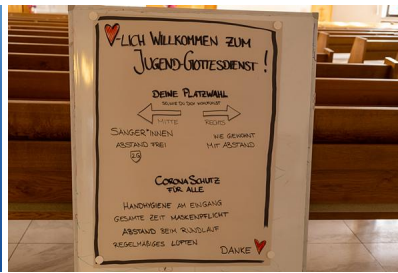 -LICH WILLKOMMEN ZUM
JUGEND-GOTTESDIENST!
DEINE PLATZWAHL
MITTE
RECHTS
SÄNGER*INNEN
ABSTAND FREI
2G
WIE GEWOHNT
MIT ABSTAND
CORONASCHUTZ
FÜR ALLE
HANDHYGIENE AM EINGANG
GESAMTE ZEIT MASKENPFLICHT
ABSTAND BEIM RUNDLAUF
REGELMÄßIGES LÜFTEN
DANKE